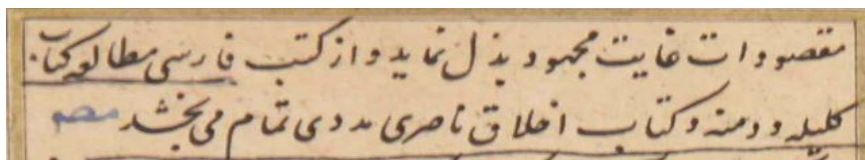 مقصودات غایت مجهود بذل نماید و از کتب فارسی مطالعه کتاب
کلیله و دمنه و کتاب اخلاق ناصری مددی تمام می بخشد